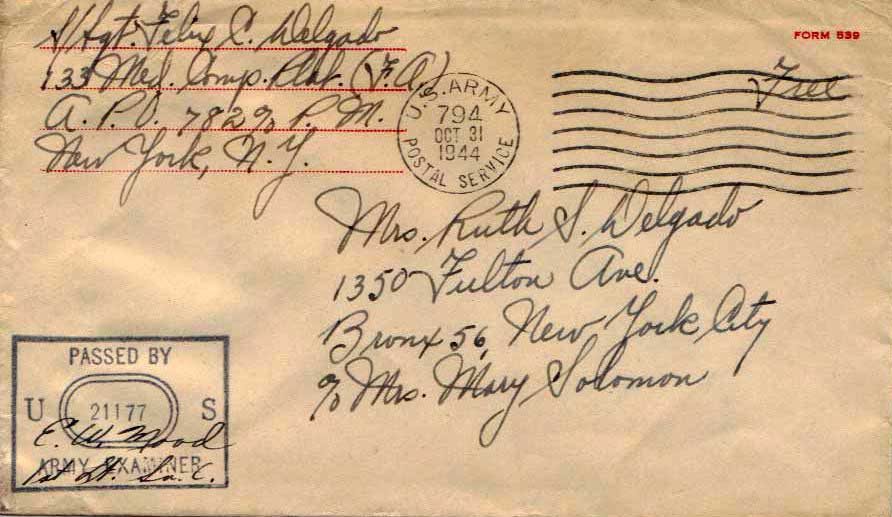 S/Sgt. Felix C. Delgado
133 Med. Comp. Plat. (F.A.)
A.P.O. 782 % P.M.
New York, N.Y.
FORM 539
Free
U.S. ARMY
794
OCT 31
1944
POSTAL SERVICE
Mrs. Ruth S. Delgado
1350 Fulton Ave.
Bronx 56, New York City
% Mrs. Mary Solomon
PASSED BY
U 21177 S
E. W. Mood
ARMY EXAMINER
1st Lt.